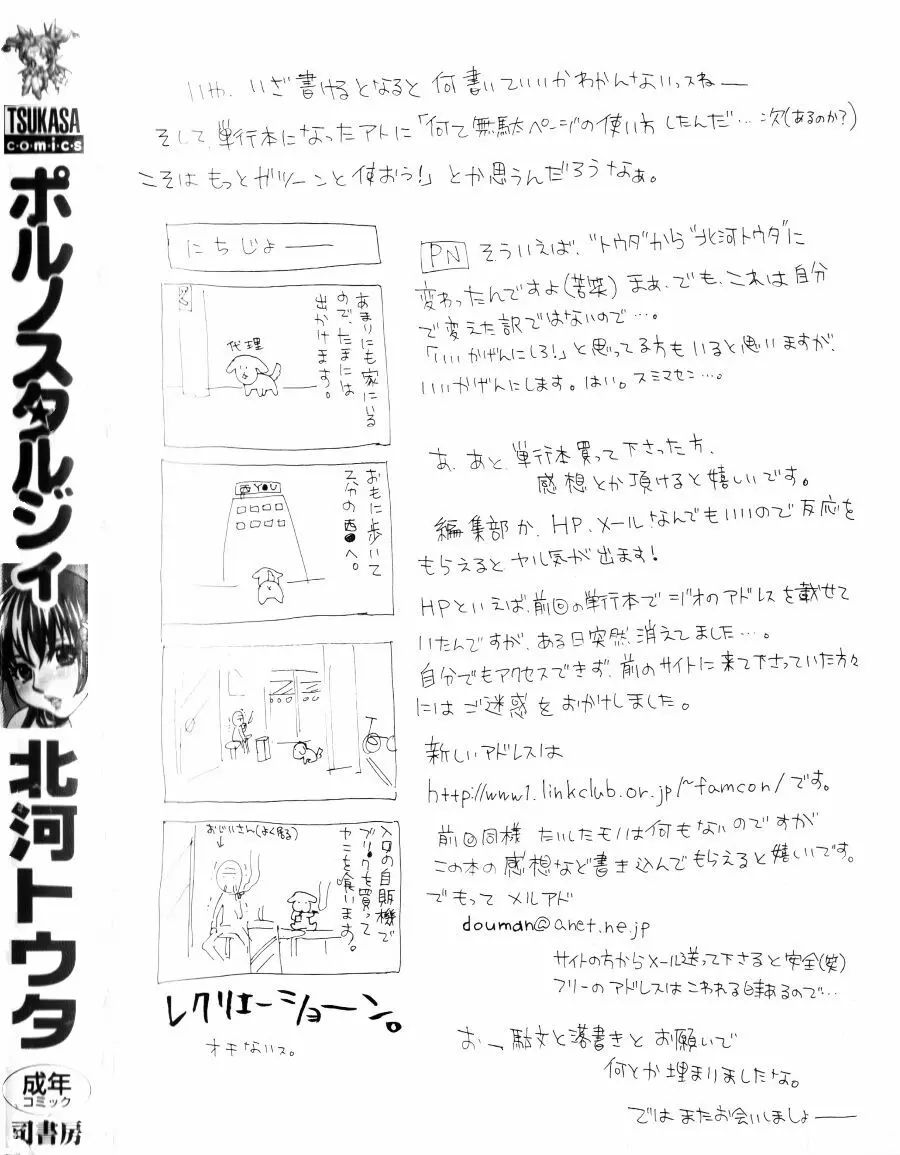 TSUKASA
C·O·M·I·C·S
ポルノスタルジィ
北河トウタ
成年
コミック
司書房
いや、いざ書けるとなると何書いていいかわかんないっスねー
そして、単行本になったアトに「何て無駄ページの使い方したんだ…次(あるのか?)
こそはもっとガツーンと使おう!」とか思うんだろうなぁ。
にちじょーー
あまりにも家にいる
ので、たまには
出かけます。
代理
おもに歩いて
5分の西●へ。
西YOU
おじいさん(よく居る)
入口の自販機で
ブリ●クを買って
ヤニを喰います。
レクリエーショーン。
オチないス。
PN そういえば、"トウタ"から"北河トウタ"に
変わったんですよ(苦笑)まぁ、でも、これは自分
で変えた訳ではないので…。
「いいかげんにしろ!」と思ってる方もいると思いますが、
いいかげんにします。はい。スミマセン…。
あ、あと、単行本買って下さった方、
感想とか頂けると嬉しいです。
編集部か、HP、メールなんでもいいので反応を
もらえるとヤル気が出ます!
HPといえば、前回の単行本でジオのアドレスを載せて
いたんですが、ある日突然消えてました…。
自分でもアクセスできず、前のサイトに来て下さっていた方々
にはご迷惑をおかけしました。
新しいアドレスは
http://www1.linkclub.or.jp/~famcon/です。
前回同様たいしたモノは何もないのですが
この本の感想など書き込んでもらえると嬉しいです。
でもってメルアド
douman@anet.ne.jp
サイトの方からメール送って下さると安全(笑)
フリーのアドレスはこわれる時あるので…
おー、駄文と落書きとお願いで
何とか埋まりましたな。
ではまたお会いしましょーー